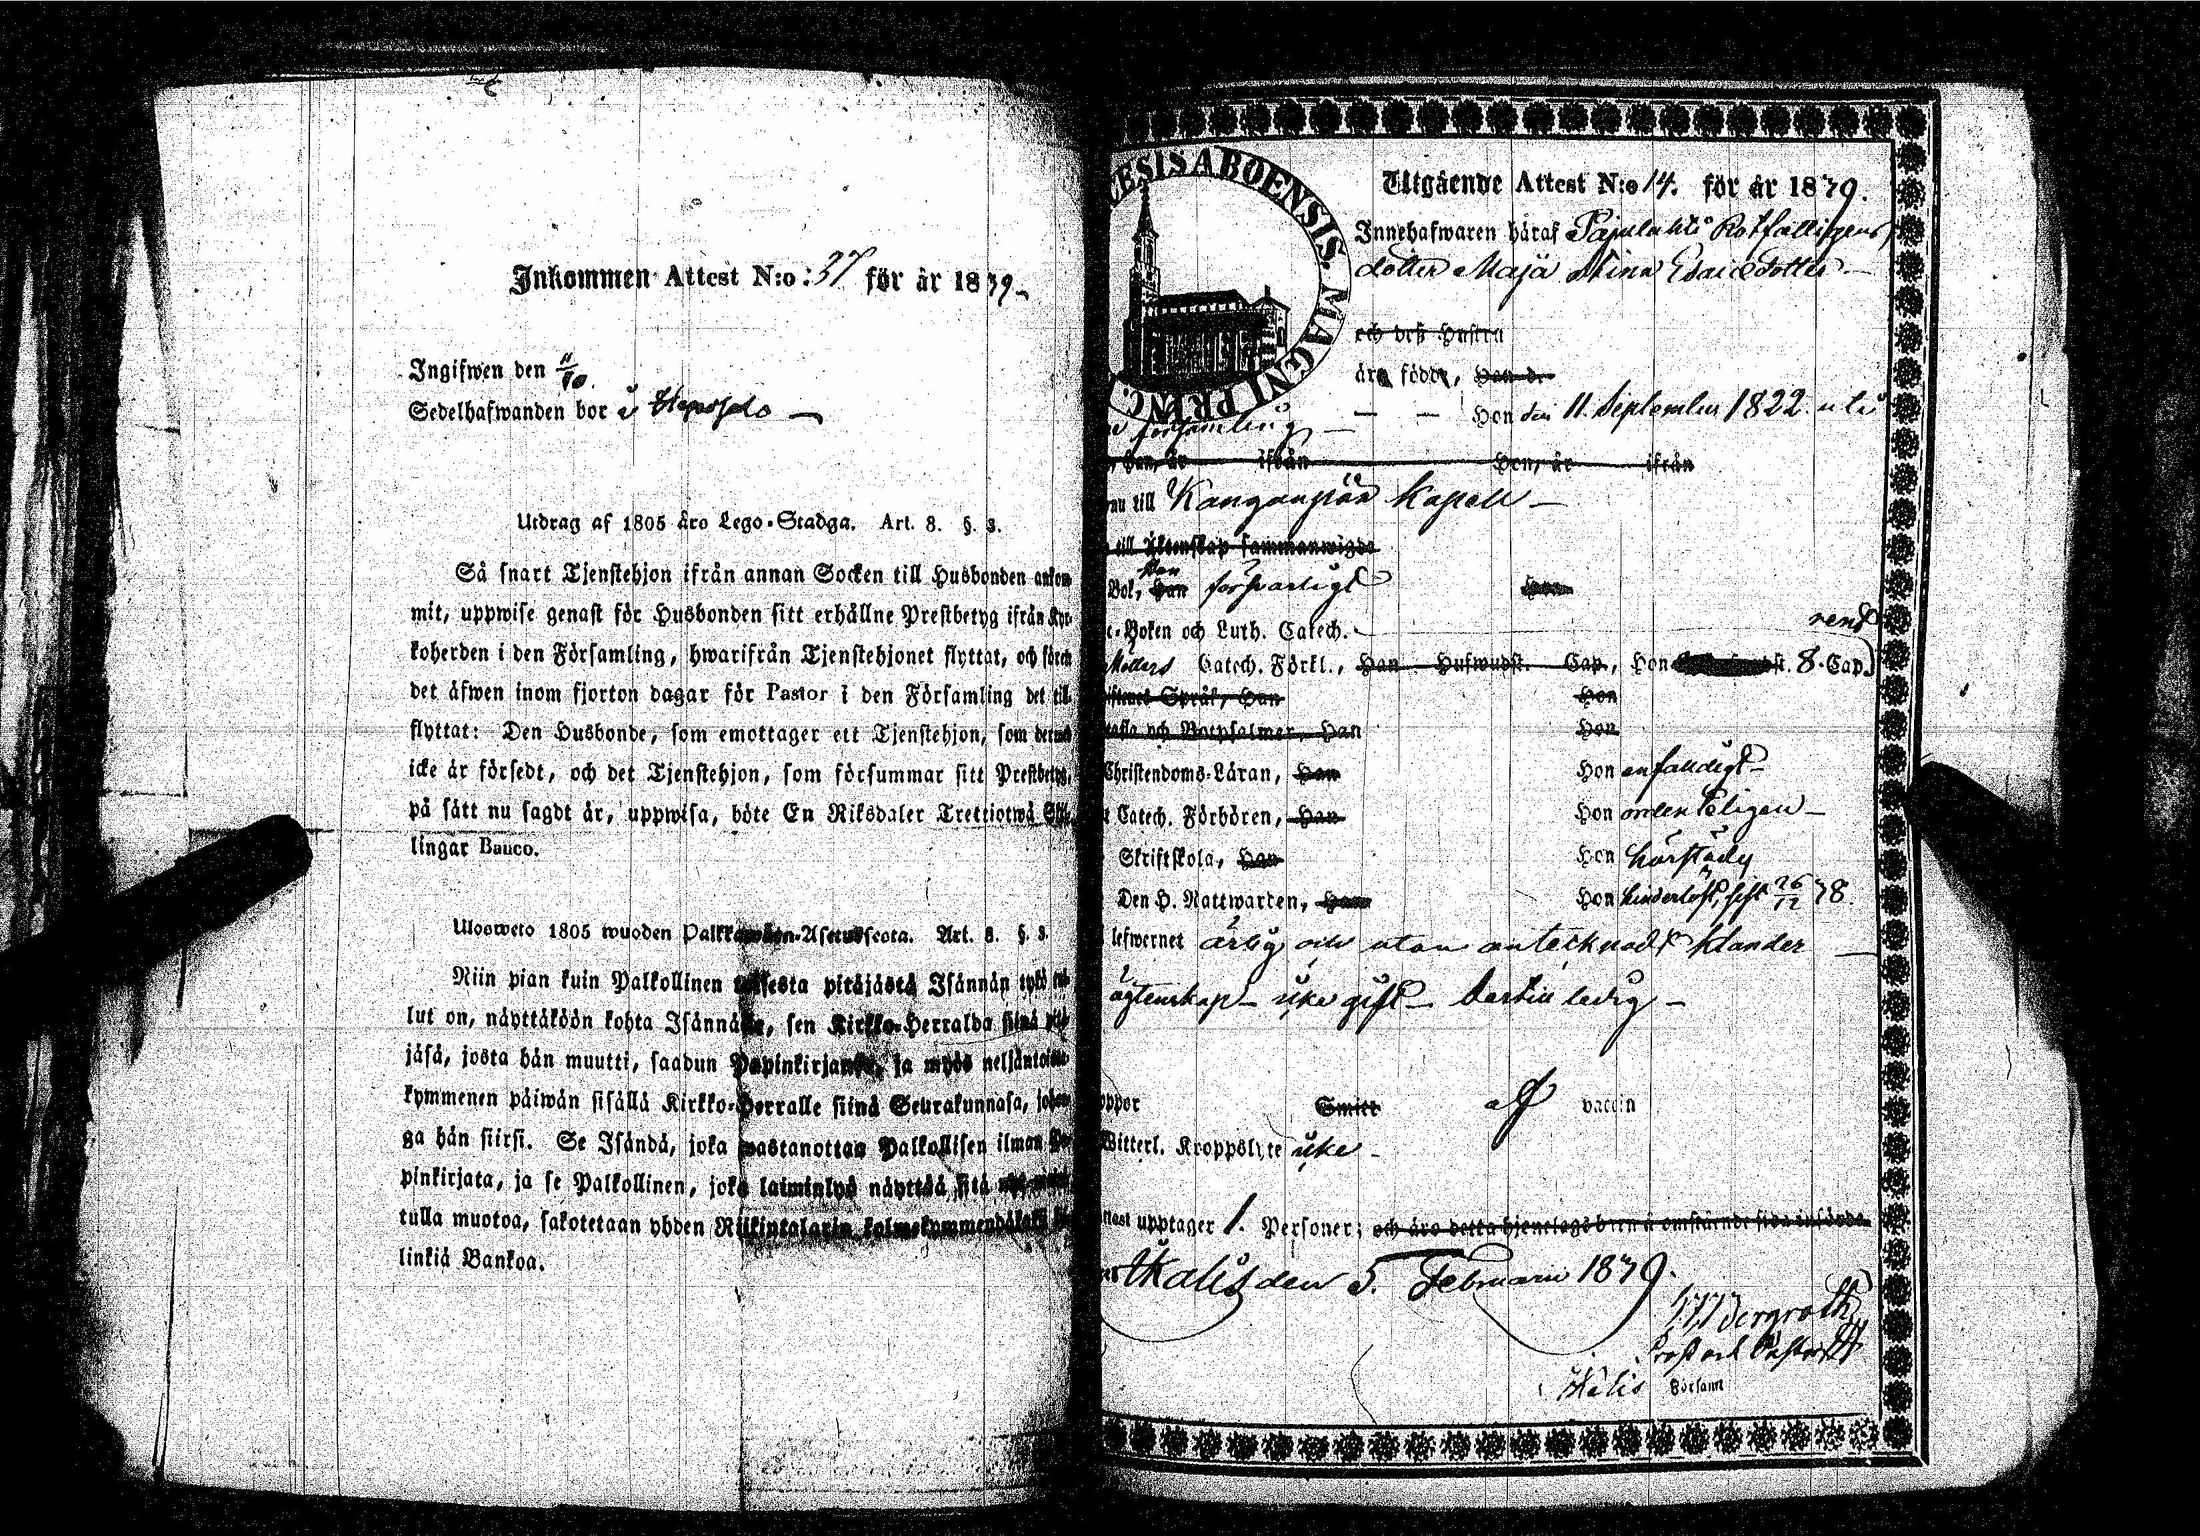 Inkommen Attest N:o 37 för år 1879
Ingifwen den 11/10.
Sedelhafwanden bor i
Utdrag af 1805 års Lego-Stadga. Art. 8. §. 3.
Så snart Tjenstehjon ifrån annan Socken till Husbonden ankom-
mit, uppwise genast för Husbonden sitt erhållne Prestbetyg ifrån Kyr-
koherden i den Församling, hwarifrån Tjenstehjonet flyttat, och förete
det äfwen inom fjorton dagar för Pastor i den Församling det till
flyttat: Den Husbonde, som emottager ett Tjenstehjon, som dermed
icke är försedt, och det Tjenstehjon, som försummar sitt Prestbetyg,
på sätt nu sagdt är, uppwisa, böte En Riksdaler Trettiotwå Skil-
lingar Banco.
Ulosweto 1805 wuoden Palkkawäen-Asetuksesta. Art. 8. §. 3
Niin pian kuin Palkollinen toisesta pitäjästä Isännän tykö
lut on, näyttäköön kohta Isännälle, sen Kirkko-Herralda siinä pitä-
jäsä, josta hän muutti, saadun Papinkirjansa, ja myös neljäntoista-
kymmenen päiwän sisällä Kirkko-Herralle siinä Seurakunnasa, johon-
ga hän siirsi. Se Isändä, joka wastanottaa Palkollisen ilman Pa-
pinkirjata, ja se Palkollinen, joka laiminlyö näyttää sitä
tulla muotoa, sakotetaan yhden Riikintalarin kolmekymmendäkaksi
linkiä Bankoa.
CESIS ABOENSIS. MAGNI PRINC.
Utgående Attest N:o 14. för år 1879.
Innehafwaren häraf Pajulahti Rotfattigens
dotter Maja Stina Esaiedotter
och deß Hustru
äro födde, Han d.
Hon den 11. September 1822 uti
församling
Han, år ifrån Hon, år ifrån
nu till Kangonpää Kapell
till Äktenskap sammanwigde
Bok, Han Hon försvarligt
Boken och Luth. Catech.
renst
Möllers Catech. Förkl., Han Hufwudst. Cap, Hon st. 8 Cap.
Språk, Han Hon
tafla och Botpsalmer, Han Hon
Christendoms-Läran, Han Hon enfaldigt
Catech. Förhören, Han Hon ordentligen
Skriftskola, Han Hon
Den H. Nattwarden, Han Hon hinderlöst, sist 26/12 78.
lefwernet ärlig och utan antecknadt klander
ägtenskap icke gift hertill ledig
koppor Smitt af vaccin
Witterl. Kroppslyte icke
upptager 1. Personer; och äro detta hjonelags barn å omstående sida införde
Ikalis den 5. Februarii 1879.
Bergroth
Prost och Pastor
Ikalis Församl